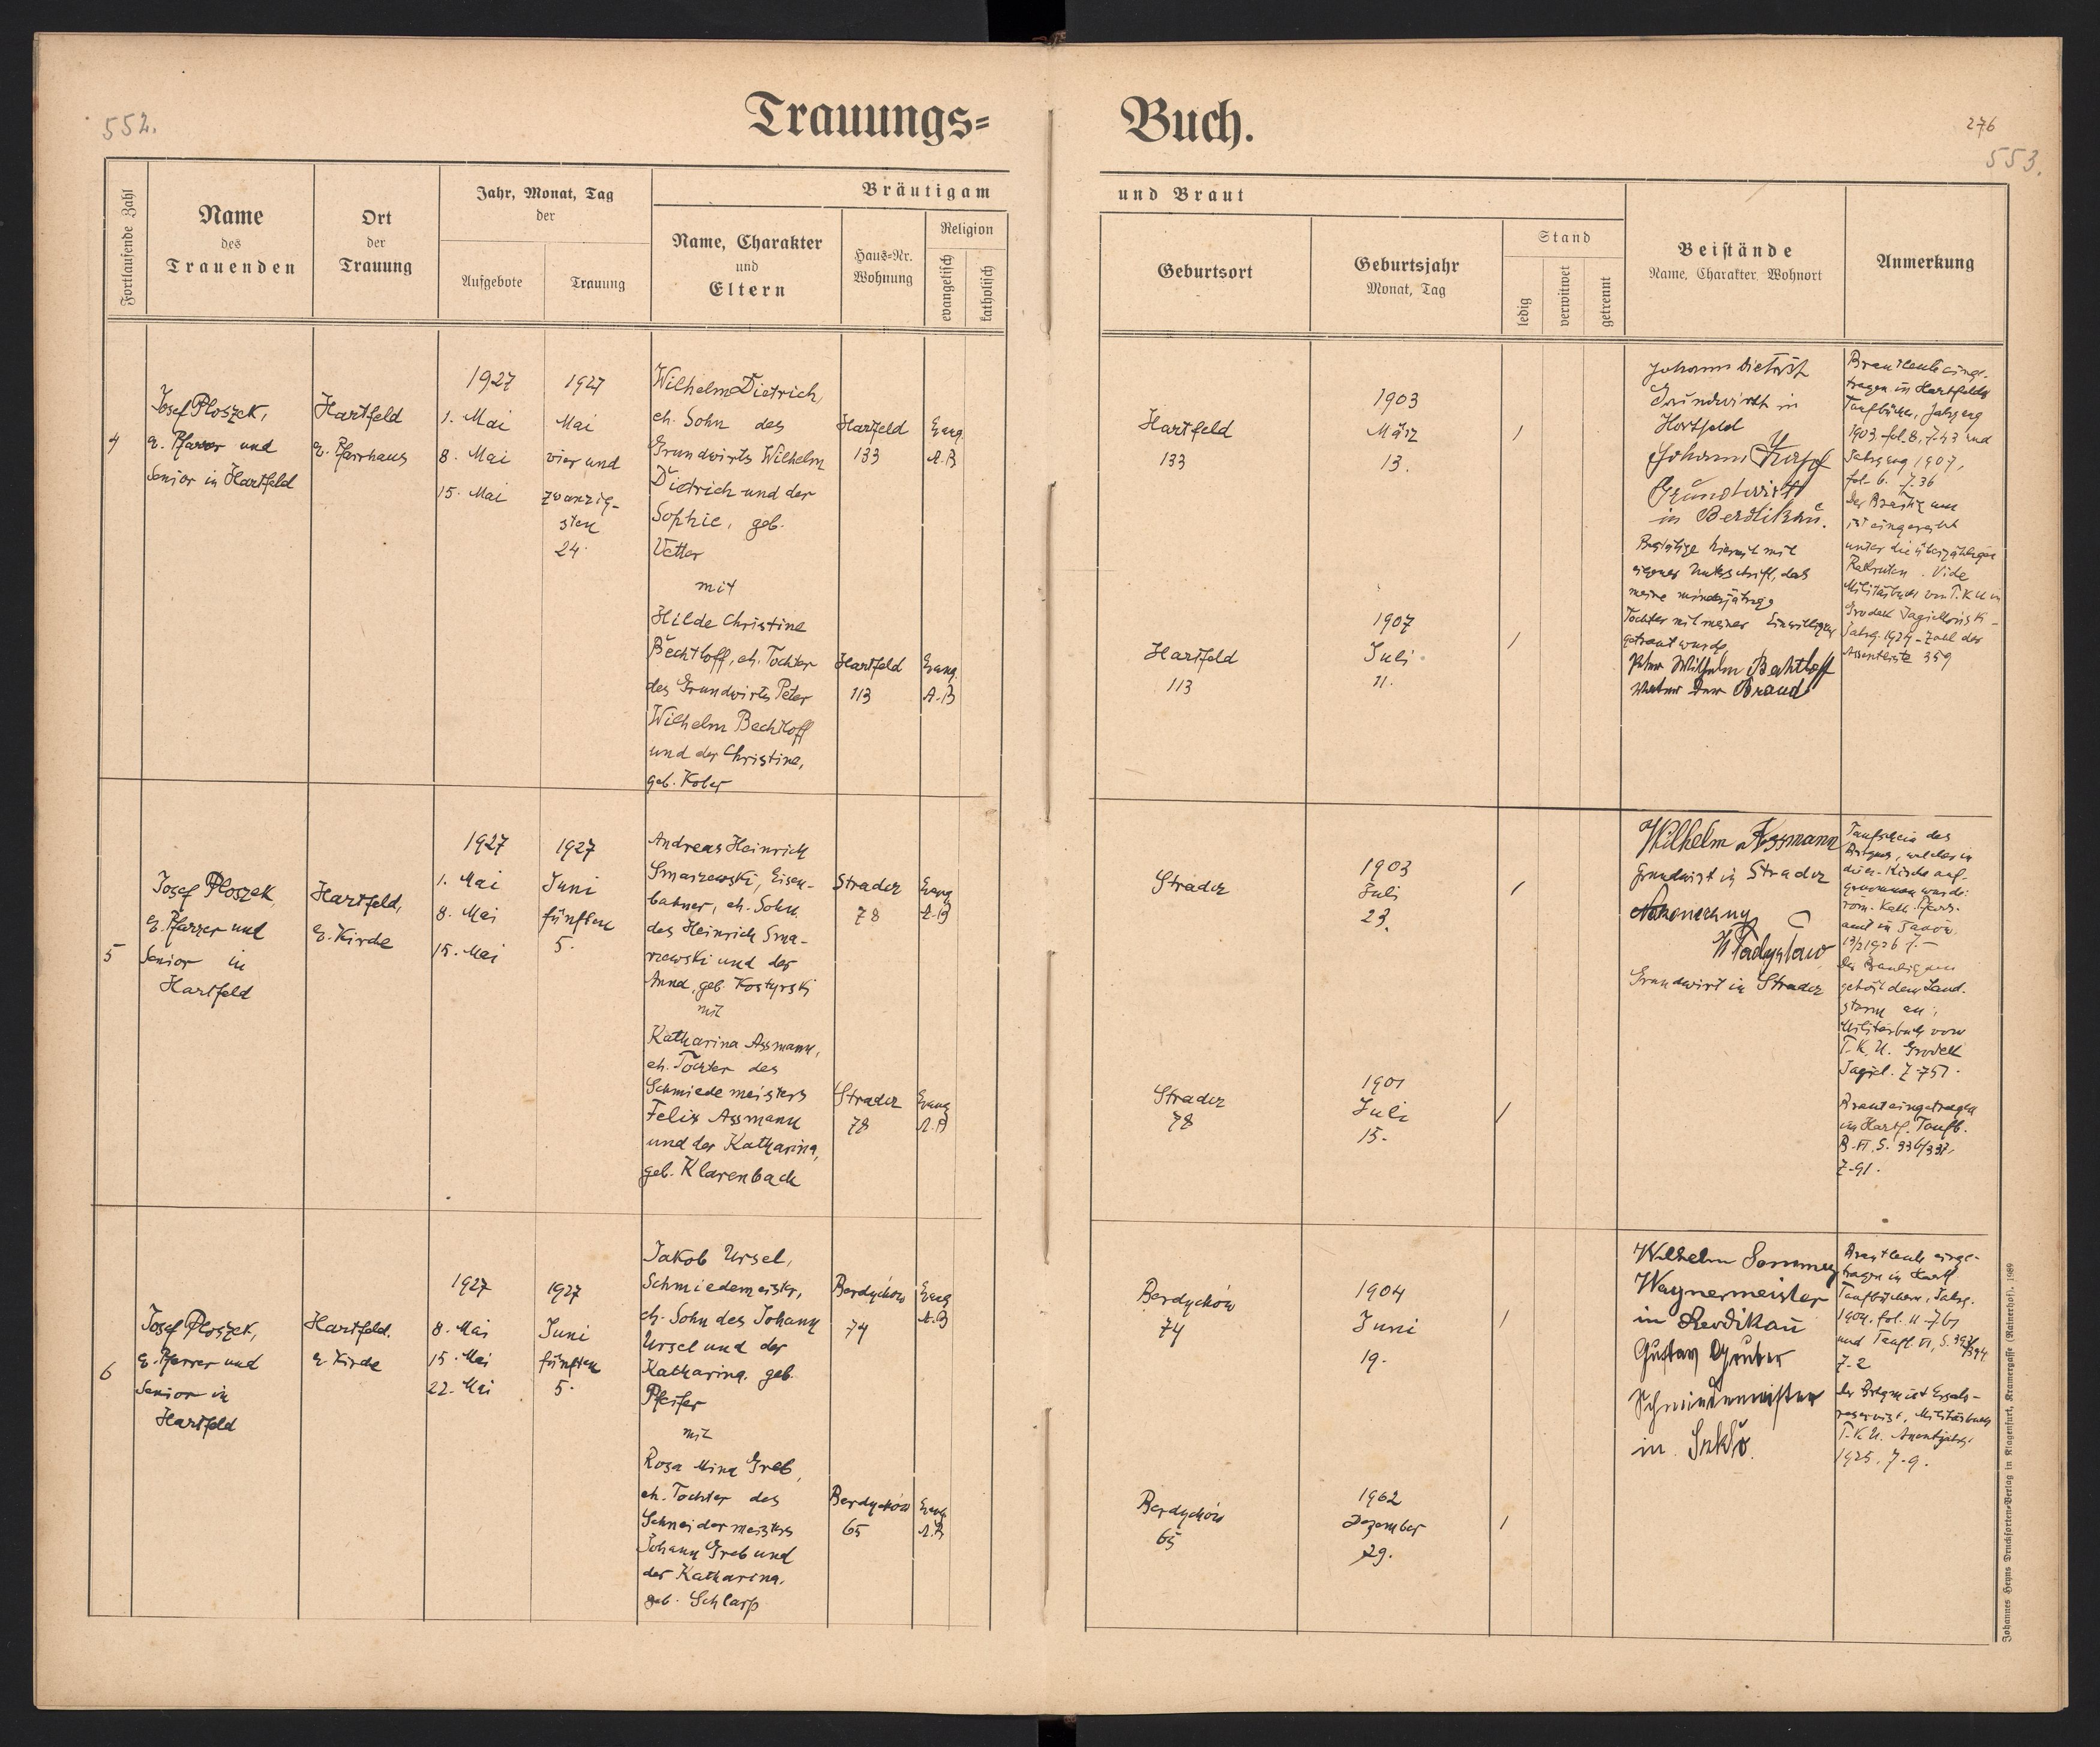 552.
Trauungs=
Buch.
276
553.
Fortlaufende Zahl
Name
des
Trauenden
Ort
der
Trauung
Jahr, Monat, Tag
der
Aufgebote
Trauung
Bräutigam
Name, Charakter
und
Eltern
Haus=Nr.
Wohnung
Religion
evangelisch
katholisch
und Braut
Geburtsort
Geburtsjahr
Monat, Tag
Stand
ledig
verwitwet
getrennt
Beistände
Name, Charakter, Wohnort
Anmerkung
4
Josef Ploszek,
e. Pfarrer und
Senior in Hartfeld
Hartfeld
e. Pfarrhaus
1927
1. Mai
8. Mai
15. Mai
1927
Mai
vier und
zwanzig-
sten
24.
Wilhelm Dietrich,
eh. Sohn des
Grundwirts Wilhelm
Dietrich und der
Sophie, geb.
Vetter
mit
Hilde Christine
Bechtloff, eh. Tochter
des Grundwirts Peter
Wilhelm Bechtloff
und der Christine,
geb. Koler
Hartfeld
133
Evang.
A.B
Hartfeld
113
Evang.
A.B
Hartfeld
133
1903
März
13.
/
Hartfeld
113
1907
Juli
11.
/
Johann Dietrich
Grundwirth in
Hartfeld
Johann
Grundwirt
in Berdikau.
Bestätige hiermit mit
eigener Unterschrift, das
meine minderjährige
Tochter mit meiner Einwilligung
getraut wurde.
Peter Wilhelm Bechtloff
Vater der Braud
Brautleute einge-
tragen in Hartfelds
Taufbücher, Jahrgang
1903. fol. 8, Z. 43 und
Jahrgang 1907,
fol. 6. Z. 36
Der Bräutigam
ist eingereiht
unter die überzähligen
Rekruten. Vide
Militärbuch von P.K.U. in
Grodek Jagielloński -
Jahrg. 1924 - Zahl der
Assentliste 359
5
Josef Ploszek,
e. Pfarrer und
Senior in
Hartfeld
Hartfeld,
e. Kirche
1927
1. Mai
8. Mai
15. Mai
1927
Juni
fünften
5.
Andreas Heinrich
Smarzewski, Eisen-
bahner, eh. Sohn
des Heinrich Sma-
rzewski und der
Anna, geb. Kostyrski
mit
Katharina Assmann,
eh. Tochter des
Schmiedemeisters
Felix Assmann
und der Katharina,
geb. Klarenbach
Stradcz
78
Evang
A.B
Stradcz
78
Evang
A.B
Stradcz
1903
Juli
23.
/
Stradcz
78
1901
Juli
15.
/
Wilhelm Assmann
Grundwirt in Stradcz
Nakonechny
Władysław
Grundwirt in Stradcz
Taufschein des
Brtgms, welcher in
die ev. Kirche auf-
genommen wurde:
röm. Kath. Pfarr-
amt in Janów.
Der Bräutigam
gehört dem Land-
sturm an;
Militärbuch vom
P.K.U. Grodek
Jagiel. Z. 757.
Braut eingetragen
im Hartf. Taufb.
B. VI, S. 336/337,
Z. 91.
6
Josef Ploszek,
e. Pfarrer und
Senior in
Hartfeld
Hartfeld.
e. Kirche
1927
8. Mai
15. Mai
22. Mai
1927
Juni
fünften
5.
Jakob Ursel,
Schmiedemeister,
eh. Sohn des Johann
Ursel und der
Katharina, geb.
Pfeifer
mit
Rosa Mina Greb,
eh. Tochter des
Schneidermeisters
Johann Greb und
der Katharina,
geb. Schlarp
Berdychów
74
Evang
A.B
Berdychów
65
Evang
A.B
Berdychów
74
1904
Juni
19.
/
Berdychów
65
1902
Dezember
29.
/
Wilhelm Sommer
Wagnermeister
in Berdikau
Gustav Gruber
Schmiedemeister
in Szkło.
Brautleute einge-
tragen in Hartf.
Taufbüchern, Jahrg.
1904. fol. 11 Z. 61
und Taufb. VI, S. 393/394
Z. 2
Der Brtgm ist Ersatz-
reservist, Militärbuch
P.K.U. Assentjahrg.
1925. Z. 9.
Johannes Heyns Drucksorten=Verlag in Klagenfurt, Kramergasse (Rainerhof). 1989